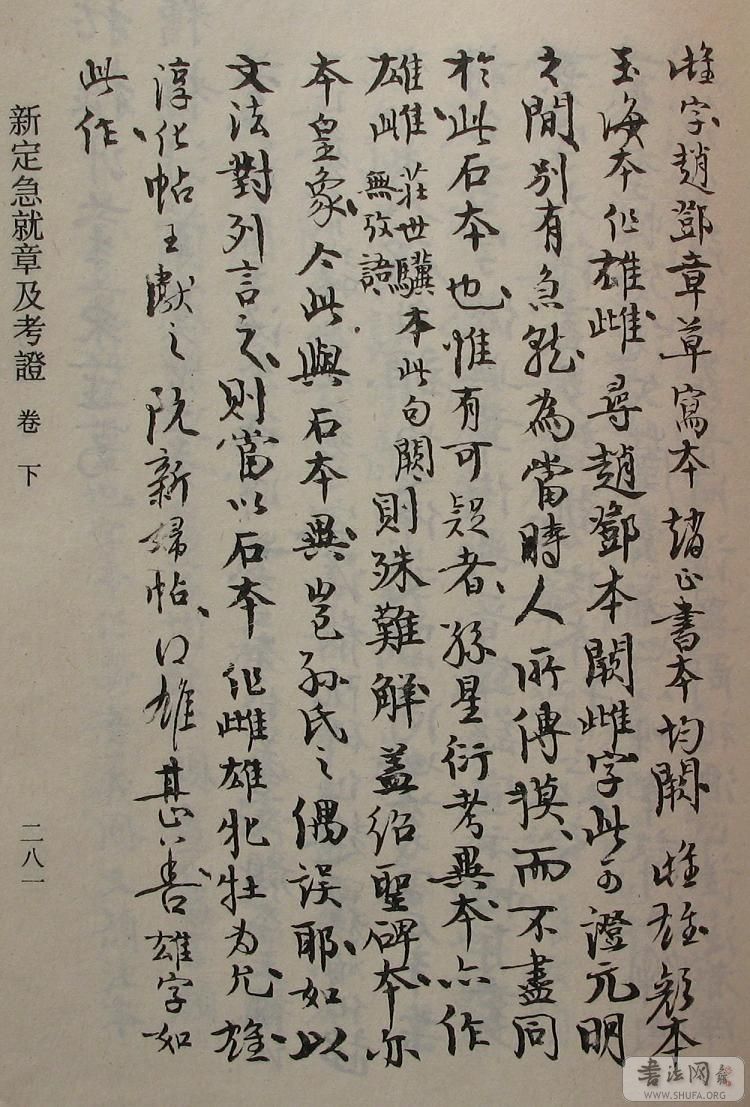 雌字趙鄧章草寫本趙正書本均闕雌雄顏本
玉海本作雄雌尋趙鄧本闕雌字此可證元明
之間別有急就為當時人所傳摸而不盡同
於此石本也惟有可疑者孫星衍考異本亦作
雄雌莊世驥本此句闕無攷語則殊難解蓋紹聖碑本亦
本皇象今此與石本異豈孫氏之偶誤耶如以
文法對列言之則當以石本作雌雄牝牡為允雄
淳化帖王獻之阮新婦帖口雄甚善雄字如
此作
新定急就章及考證 卷下
二八一
書法网
WWW.SHUFA.ORG